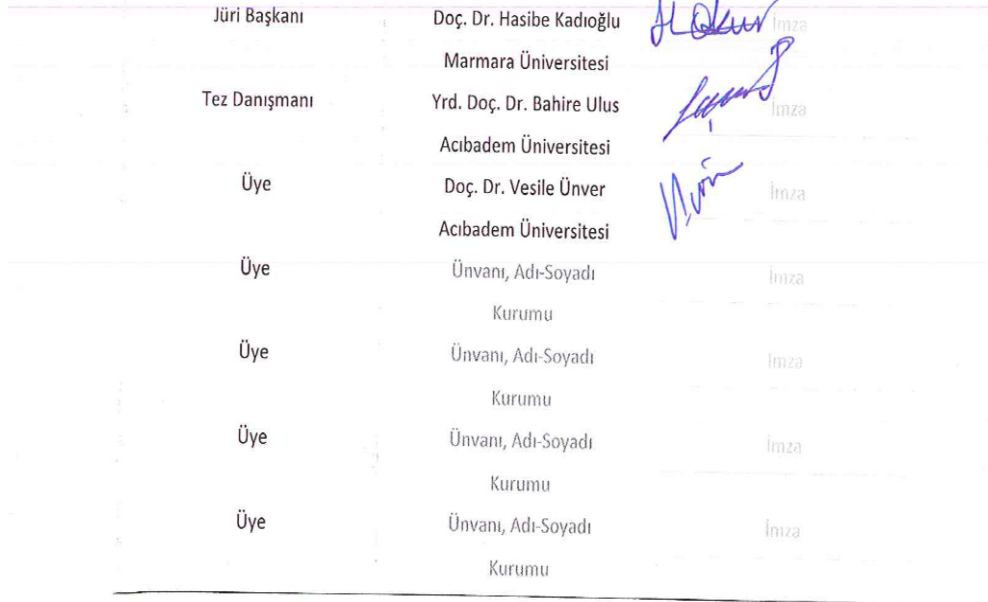 Jüri Başkanı Doç. Dr. Hasibe Kadıoğlu İmza
Marmara Üniversitesi
Tez Danışmanı Yrd. Doç. Dr. Bahire Ulus İmza
Acıbadem Üniversitesi
Üye Doç. Dr. Vesile Ünver İmza
Acıbadem Üniversitesi
Üye Ünvanı, Adı-Soyadı İmza
Kurumu
Üye Ünvanı, Adı-Soyadı İmza
Kurumu
Üye Ünvanı, Adı-Soyadı İmza
Kurumu
Üye Ünvanı, Adı-Soyadı İmza
Kurumu